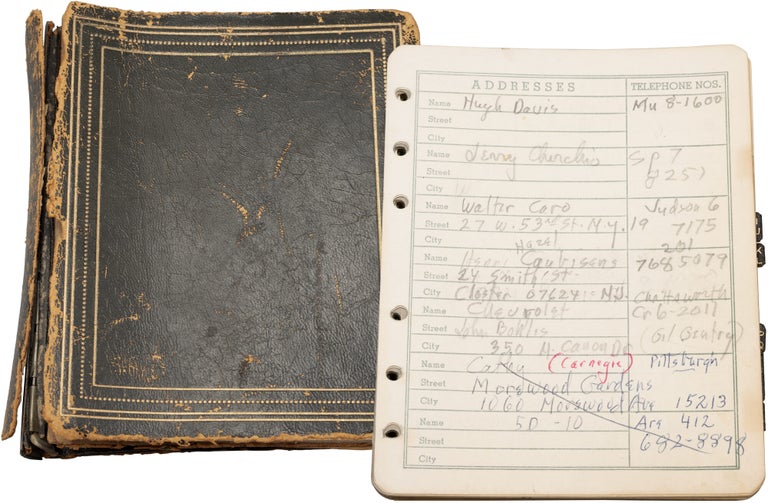 ADDRESSES TELEPHONE NOS.
Name Hugh Davis Mu 8-1600
Street
City
Name Jerry Sp 7
Street 8251
City
Name Walter Caro Judson 6
Street 27 W. 53rd St. N.Y. 19 7175
City Hazel 201
Name Henri 768 5079
Street 24 Smith St.
City Closter 07624 N.J. Chattsworth
Name Chevrolet Cr 6-2011
Street John (Gil Gentry)
City 350 N. Canon Dr
Name Cathy (Carnegie) Pittsburgh
Street Morewood Gardens
City 1060 Morewood Ave 15213
Name 5D -10 Are 412
Street 682-8898
City